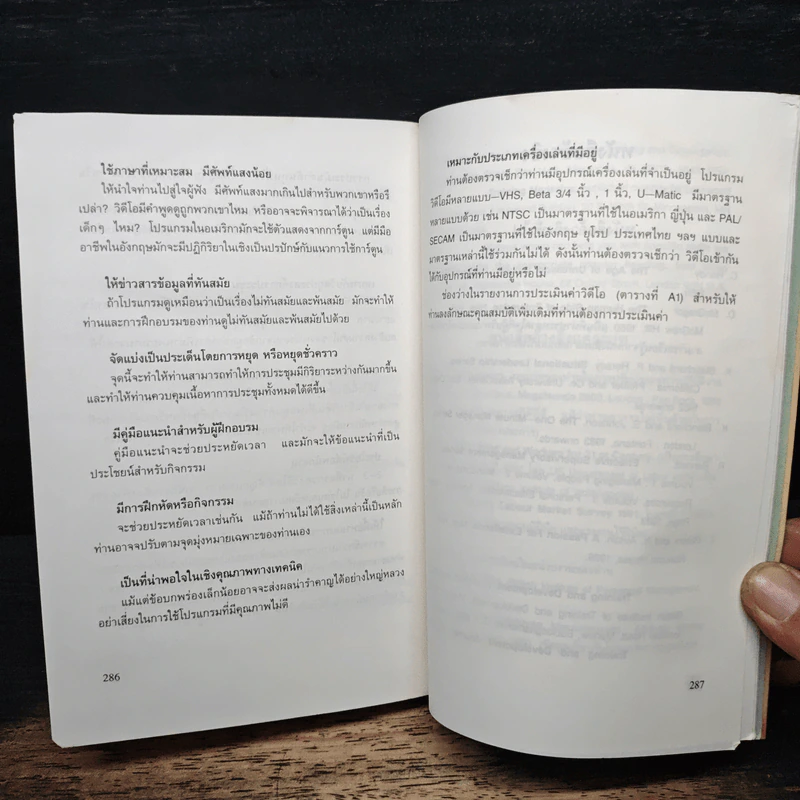 ใช้ภาษาที่เหมาะสม มีศัพท์แสงน้อย
ให้นำใจท่านไปสู่ใจผู้ฟัง มีศัพท์แสงมากเกินไปสำหรับพวกเขาหรือรึ
เปล่า? วิดีโอมีคำพูดดูถูกพวกเขาไหม หรืออาจจะพิจารณาได้ว่าเป็นเรื่อง
เด็กๆ ไหม? โปรแกรมในอเมริกามักจะใช้ตัวแสดงจากการ์ตูน แต่มีมือ
อาชีพในอังกฤษมักจะมีปฏิกิริยาในเชิงเป็นปรปักษ์กับแนวการใช้การ์ตูน
ให้ข่าวสารข้อมูลที่ทันสมัย
ถ้าโปรแกรมดูเหมือนว่าเป็นเรื่องไม่ทันสมัยและพ้นสมัย มักจะทำให้
ท่านและการฝึกอบรมของท่านดูไม่ทันสมัยและพ้นสมัยไปด้วย
จัดแบ่งเป็นประเด็นโดยการหยุด หรือหยุดชั่วคราว
จุดนี้จะทำให้ท่านสามารถทำให้การประชุมมีกิริยาระหว่างกันมากขึ้น
และทำให้ท่านควบคุมเนื้อหาการประชุมทั้งหมดได้ดีขึ้น
มีคู่มือแนะนำสำหรับผู้ฝึกอบรม
คู่มือแนะนำจะช่วยประหยัดเวลา และมักจะให้ข้อแนะนำที่เป็น
ประโยชน์สำหรับกิจกรรม
มีการฝึกหัดหรือกิจกรรม
จะช่วยประหยัดเวลาเช่นกัน แม้ถ้าท่านไม่ได้ใช้สิ่งเหล่านี้เป็นหลัก
ท่านอาจจปรับตามจุดมุ่งหมายเฉพาะของท่านเอง
เป็นที่น่าพอใจในเชิงคุณภาพทางเทคนิค
แม้แต่ข้อบกพร่องเล็กน้อยอาจจะส่งผลน่ารำคาญได้อย่างใหญ่หลวง
อย่าเสี่ยงในการใช้โปรแกรมที่มีคุณภาพไม่ดี
286
เหมาะกับประเภทเครื่องเล่นที่มีอยู่
ท่านต้องตรวจเช็กว่าท่านมีอุปกรณ์เครื่องเล่นที่จำเป็นอยู่ โปรแกรม
วิดีโอมีหลายแบบ—VHS, Beta 3/4 นิ้ว , 1 นิ้ว, U—Matic มีมาตรฐาน
หลายแบบด้วย เช่น NTSC เป็นมาตรฐานที่ใช้ในอเมริกา ญี่ปุ่น และ PAL/
SECAM เป็นมาตรฐานที่ใช้ในอังกฤษ ยุโรป ประเทศไทย ฯลฯ แบบและ
มาตรฐานเหล่านี้ใช้ร่วมกันไม่ได้ ดังนั้นท่านต้องตรวจเช็กว่า วิดีโอเข้ากัน
ได้กับอุปกรณ์ที่ท่านมีอยู่หรือไม่
ช่องว่างในรายงานการประเมินค่าวิดีโอ (ตารางที่ A1) สำหรับให้
ท่านลงลักษณะคุณสมบัติเพิ่มเติมที่ท่านต้องการประเมินค่า
287